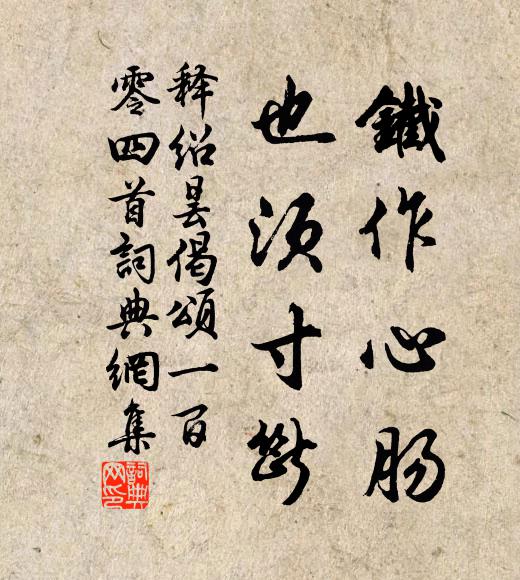 鐵作心腸
也須寸斷
释绍昙偈頌一百
零四首詞典網集
詞典
网印